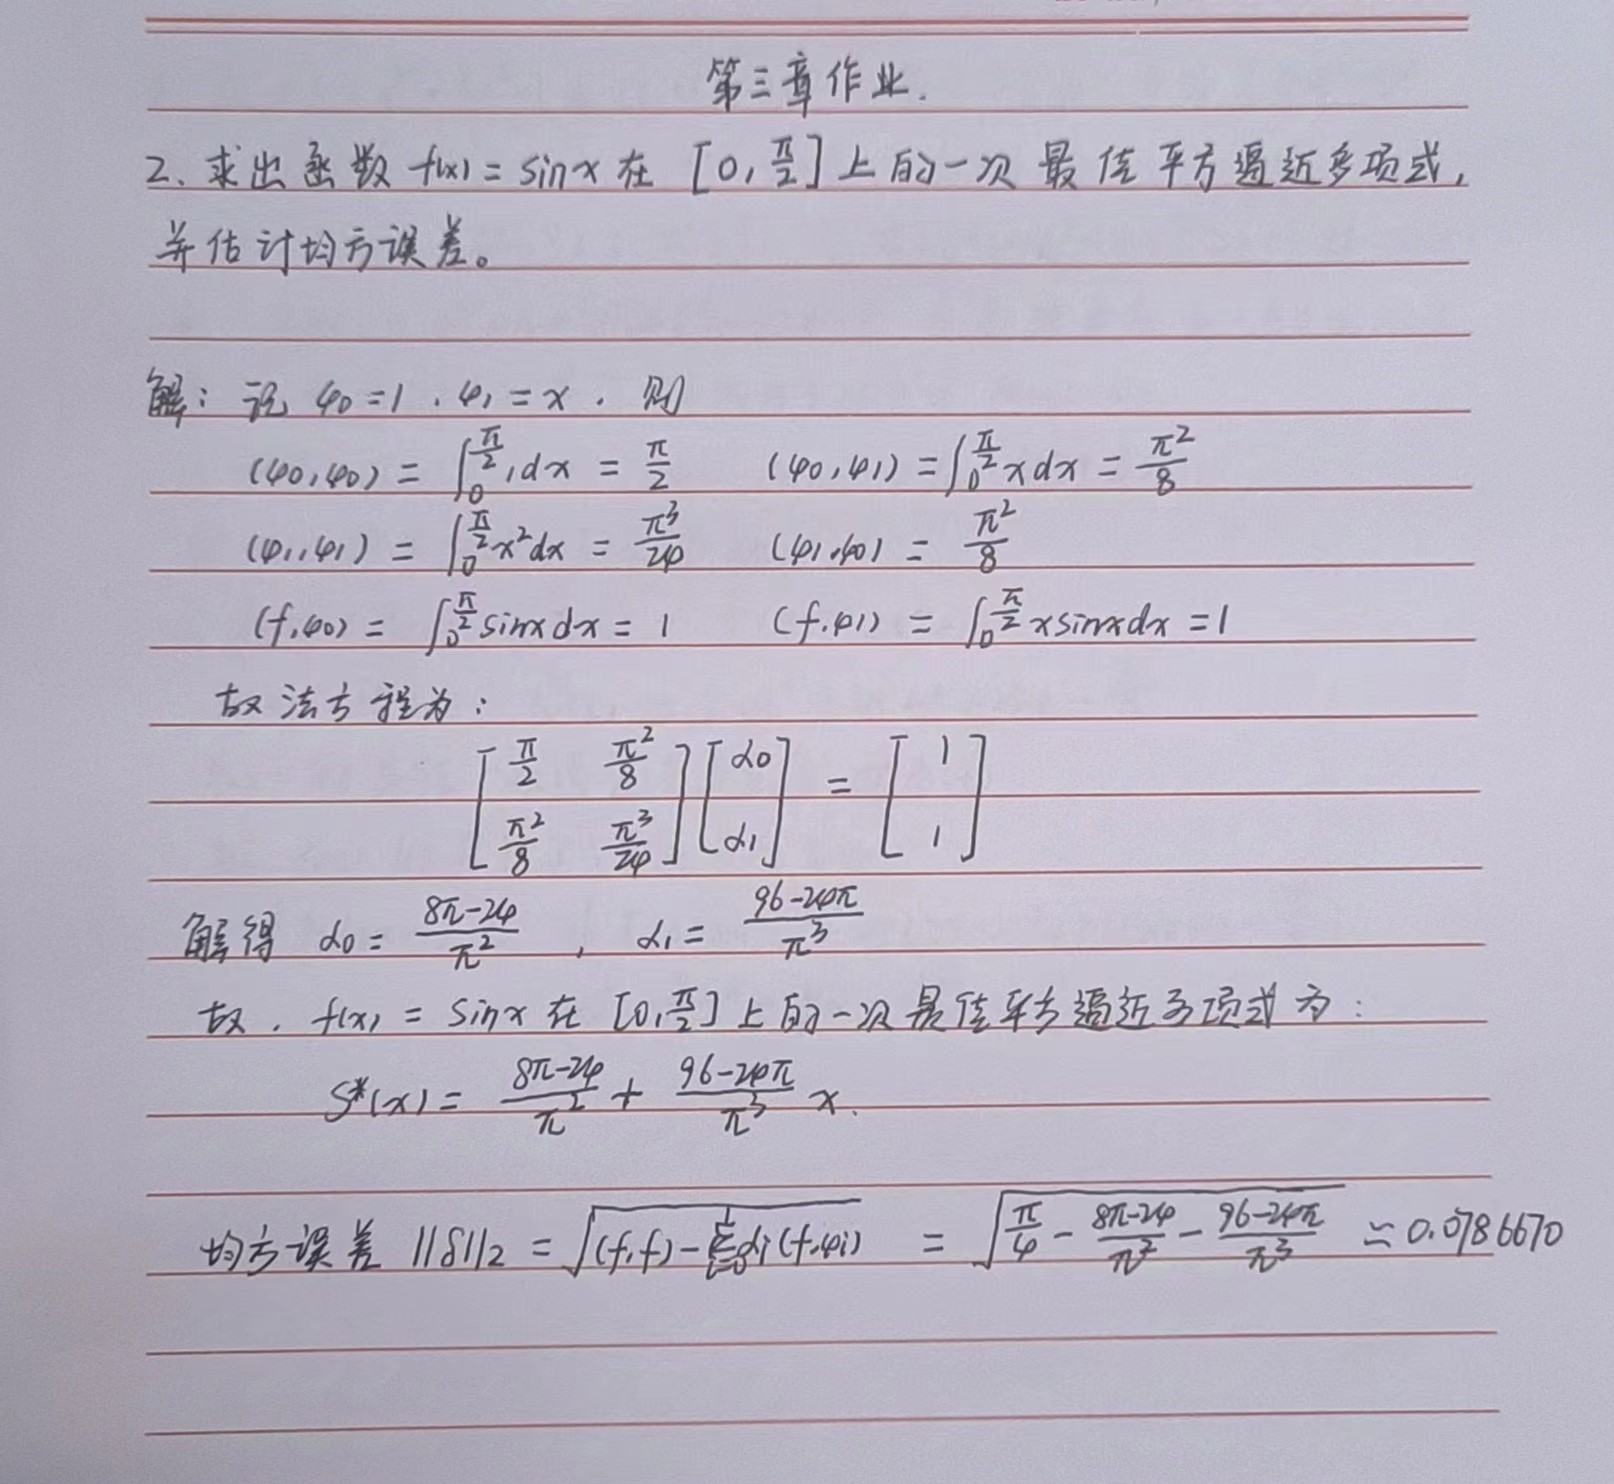 第三章作业.
2、求出函数 f(x) = sinx 在 [0, π/2] 上的一次最佳平方逼近多项式,
并估计均方误差。
解: 设 φ0 = 1 . φ1 = x . 则
(φ0,φ0) = ∫_0^{π/2} 1dx = π/2   (φ0,φ1) = ∫_0^{π/2} x dx = π²/8
(φ1,φ1) = ∫_0^{π/2} x²dx = π³/24   (φ1,φ0) = π²/8
(f,φ0) = ∫_0^{π/2} sinx dx = 1   (f,φ1) = ∫_0^{π/2} x sinx dx = 1
故法方程为:
[π/2 π²/8; π²/8 π³/24] [α0; α1] = [1; 1]
解得 α0 = (8π-24)/π² , α1 = (96-24π)/π³
故 . f(x) = sinx 在 [0, π/2] 上的一次最佳平方逼近多项式为:
S*(x) = (8π-24)/π² + (96-24π)/π³ x.
均方误差 ||δ||₂ = √((f,f) - Σ_{i=0}^{1} αi(f,φi)) = √(π/4 - (8π-24)/π² - (96-24π)/π³) ≃ 0.0786670